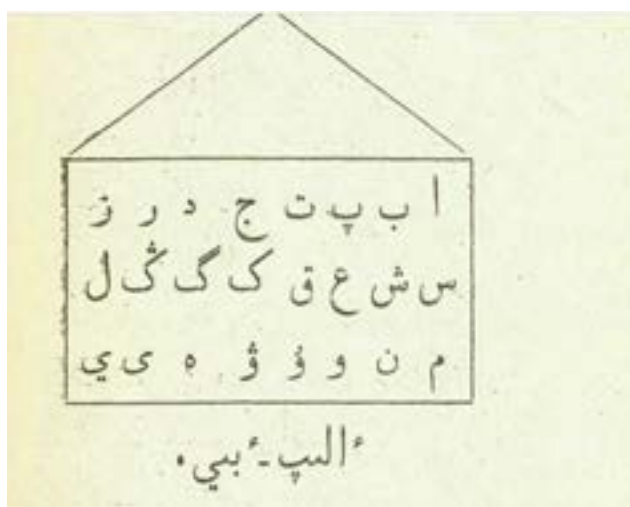 ا ب پ ت ج د ر ز
س ش ع ق ک گ ڭ ل
م ن و ۇ ۋ ە ى ي
ٴالىپ-ٴبىي.